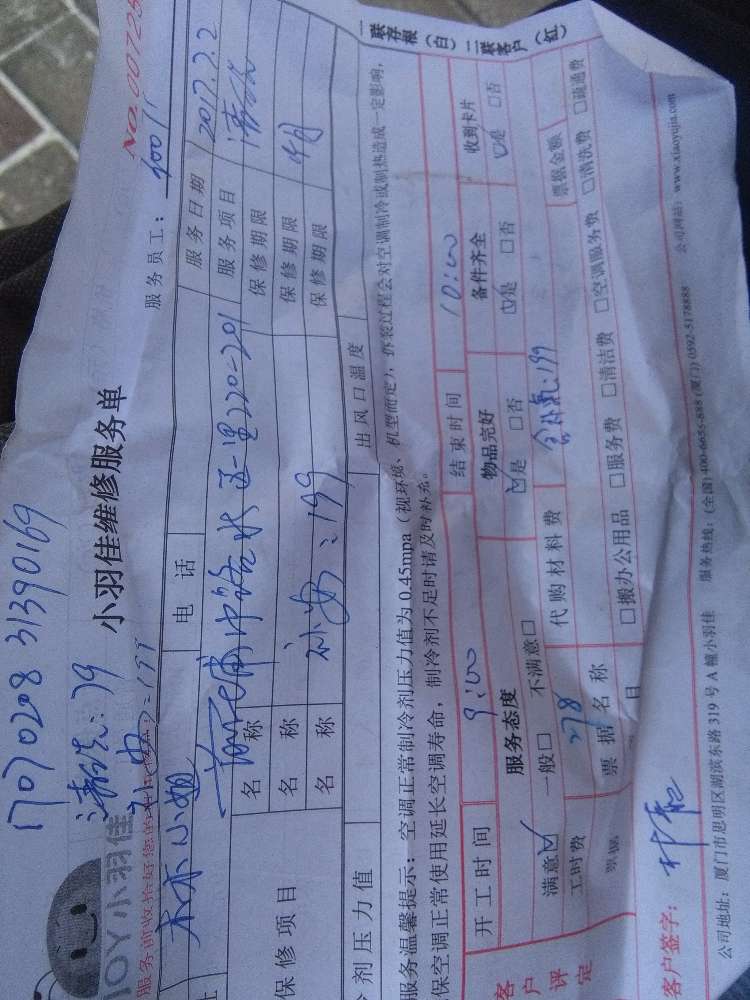 NO.007725
17070208 31390169
清洗:79
小羽佳维修服务单
JOY小羽佳
服务员工: 100
小姐
电话
服务日期 2017.7.2
服务项目 清洗
保修项目
名称
名称
名称
保修期限
保修期限 1月
保修期限
220-201
:199
剂压力值
出风口温度
服务温馨提示:空调正常制冷剂压力值为0.45mpa(视环境、机型而定),拆装过程会对空调制冷或制热造成一定影响,
保空调正常使用延长空调寿命,制冷剂不足时请及时补充。
开工时间 9:00 结束时间 10:00
客户评定
服务态度 物品完好 备件齐全 收到卡片
满意☑ 一般□ 不满意□ ☑是 □否 ☑是 □否 ☑是 □否
工时费 278 代购材料费 :199 票据金额
票据名称 □搬办公用品 □服务费 □清洁费 □空调服务费 □清洗费 □疏通费
票据 日
客户签字:
公司地址:厦门市思明区湖滨东路319号A幢小羽佳 服务热线:(全国)400-6655-888 (厦门)0592-5178888 公司网站:www.xiaoyujia.com
一联存根(白)二联客户(红)